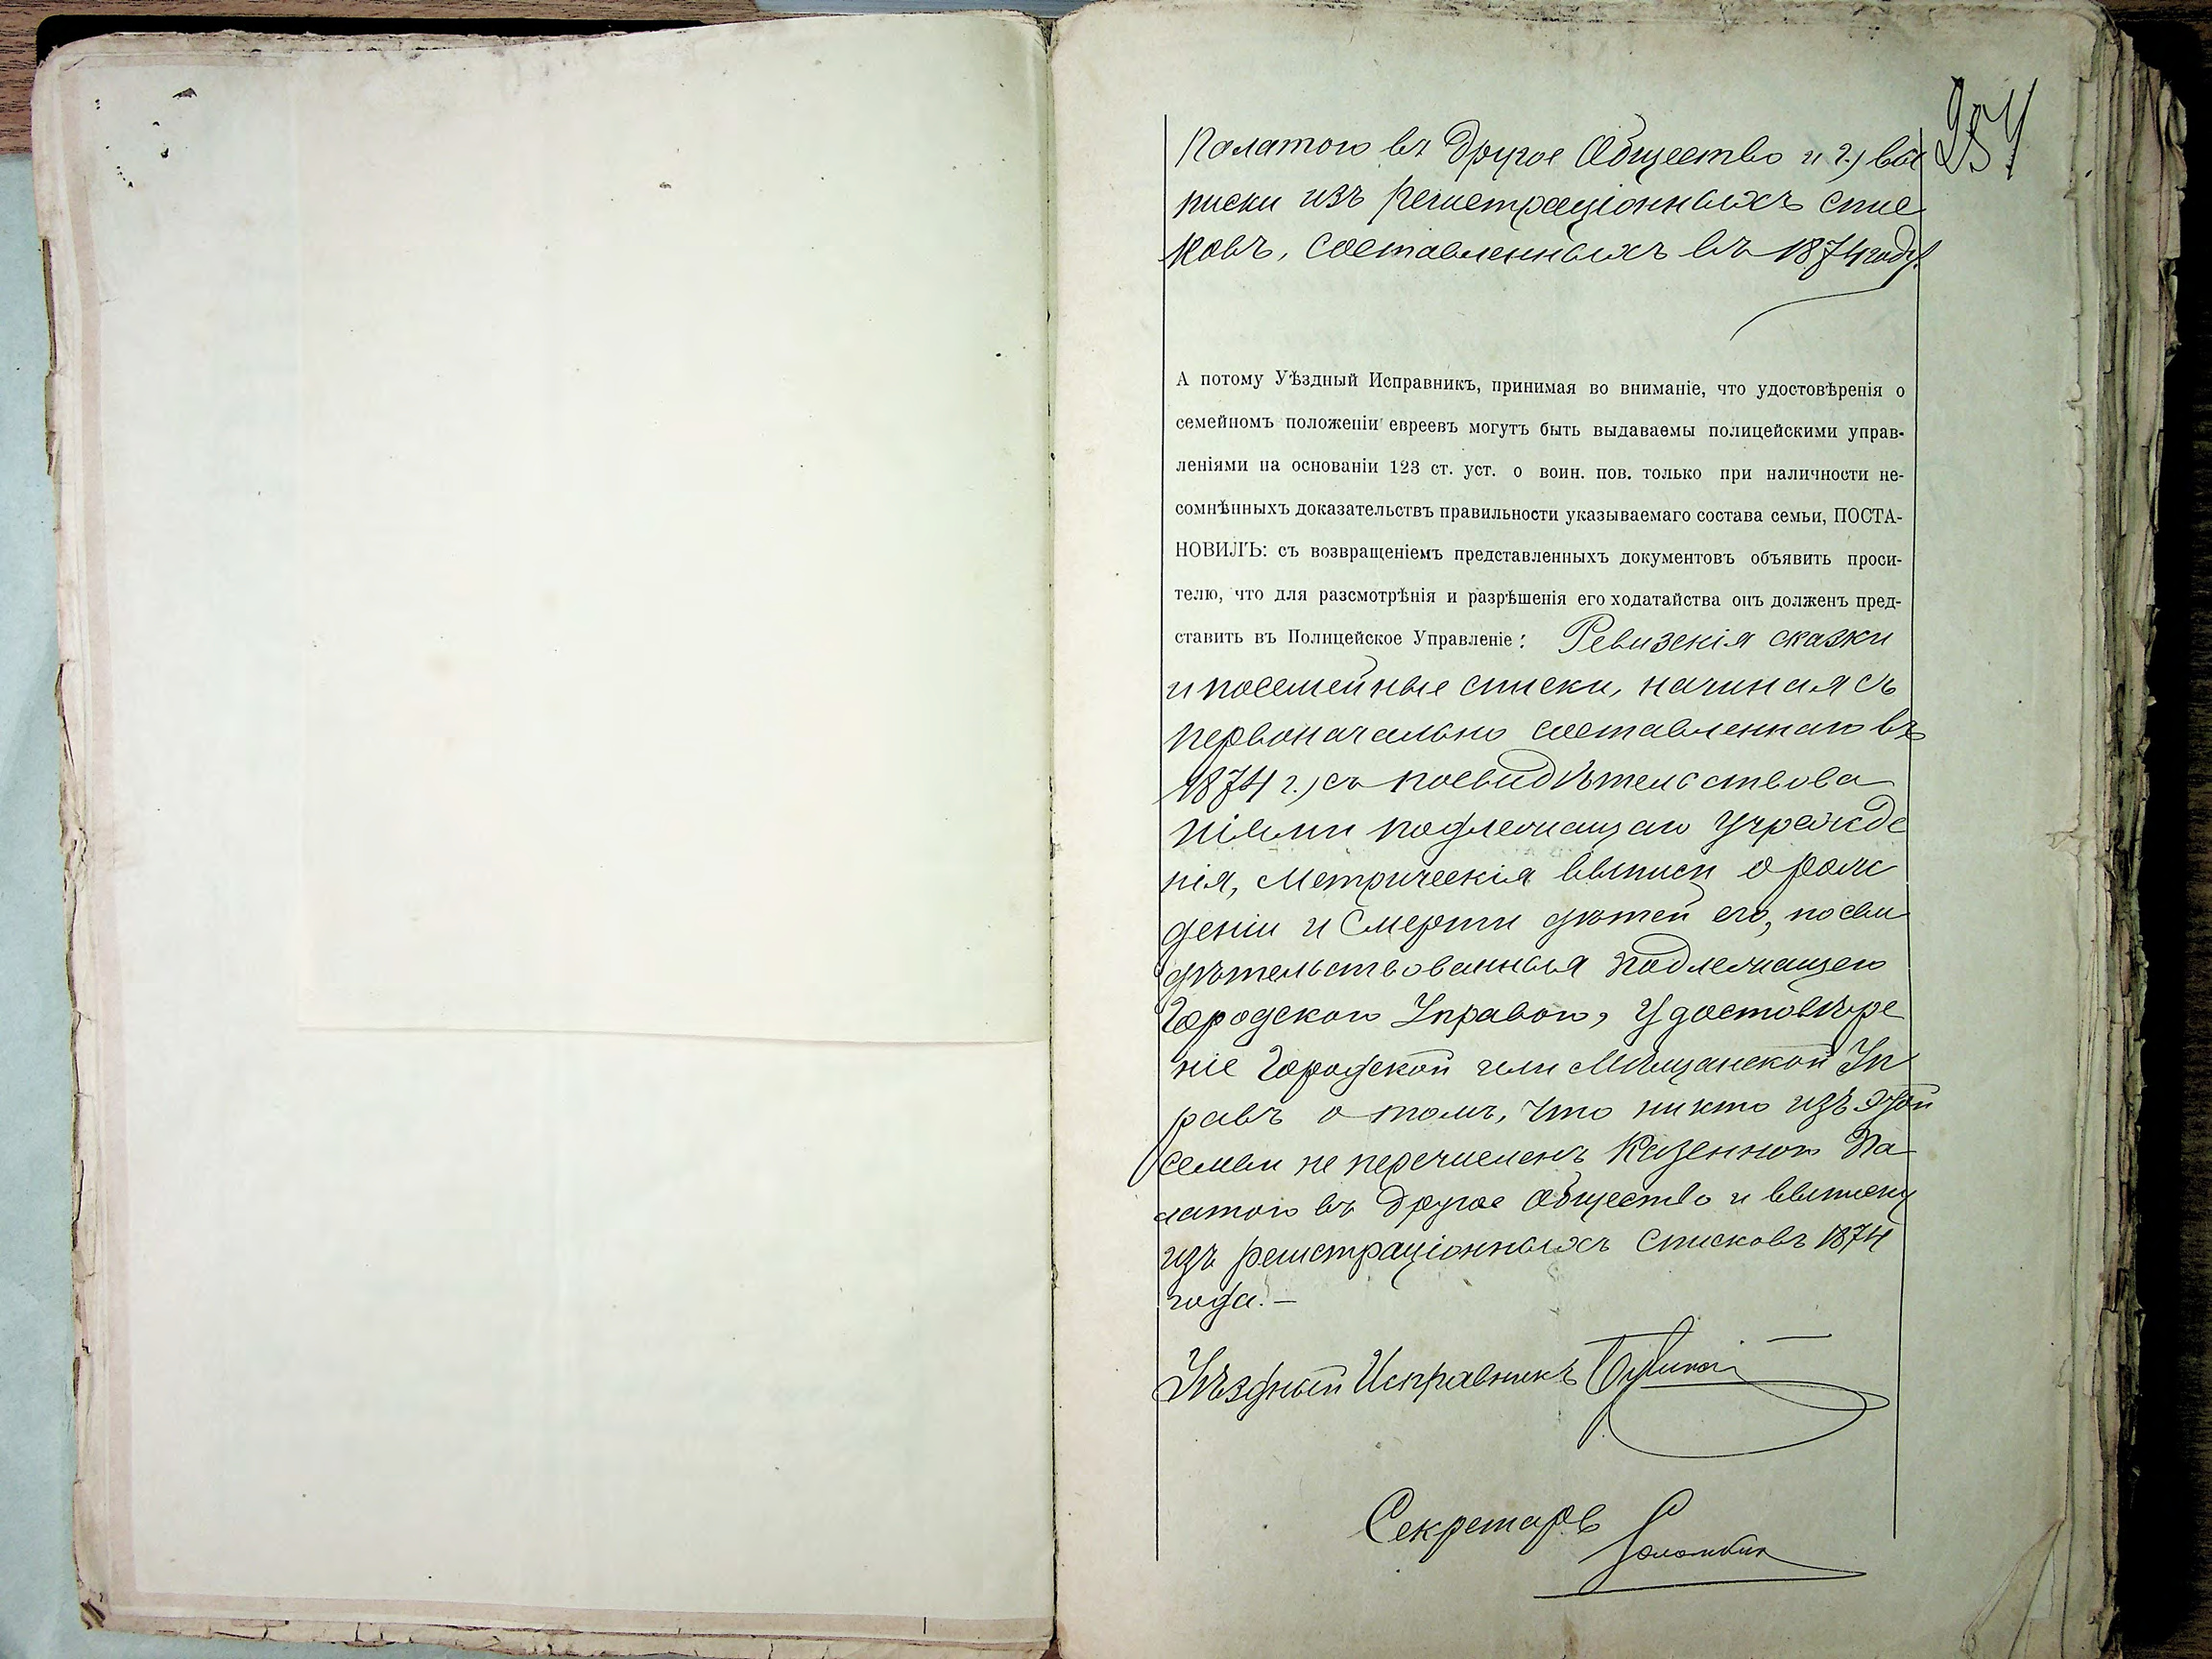 254
Палатою въ другое Общество и г.) вы
писки изъ регистраціонныхъ спис
ковъ, составленныхъ въ 1874 году.
А потому Уѣздный Исправникъ, принимая во вниманіе, что удостовѣренія о
семейномъ положеніи евреевъ могутъ быть выдаваемы полицейскими управ-
леніями на основаніи 123 ст. уст. о воин. пов. только при наличности не-
сомнѣнныхъ доказательствъ правильности указываемаго состава семьи, ПОСТА-
НОВИЛЪ: съ возвращеніемъ представленныхъ документовъ объявить проси-
телю, что для разсмотрѣнія и разрѣшенія его ходатайства онъ долженъ пред-
ставить въ Полицейское Управленіе: Ревизскія сказки
и посемейные списки, начиная съ
первоначально составленнаго въ
1874 г., съ посвидѣтельствова
ніями подлежащаго учрежде
нія, метрическія выписи о рож
деніи и смерти дѣтей его, посви
дѣтельствованныя подлежащею
Городскою Управою, удостовѣре
ніе Городской или Мѣщанской Уп
равъ о томъ, что никто изъ этой
семьи не перечисленъ Казенною Па
латою въ другое общество и выписку
изъ регистраціонныхъ списковъ 1874
года.—
Уѣздный Исправникъ
Секретарь